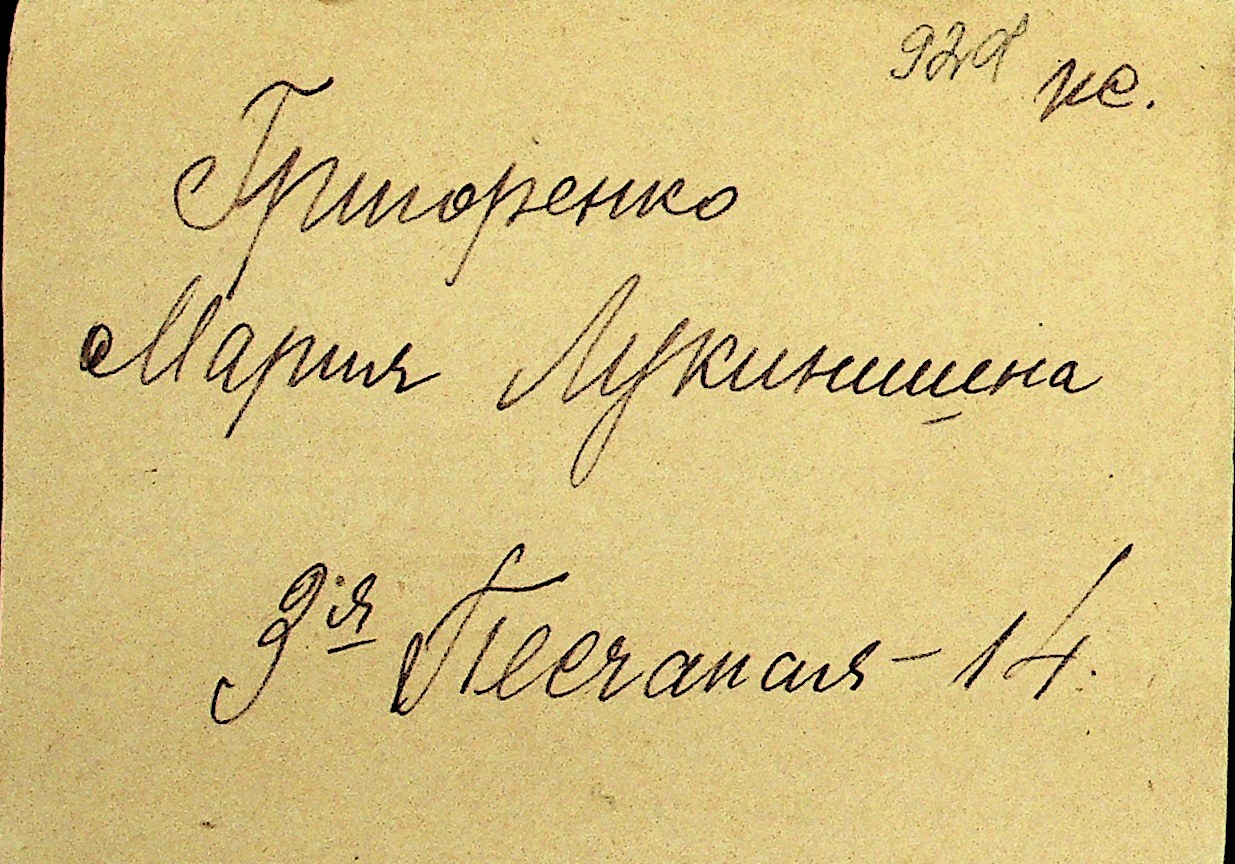 929 ко.
Григоренко
Мария Лукинишна
3ья Песчаная - 14.